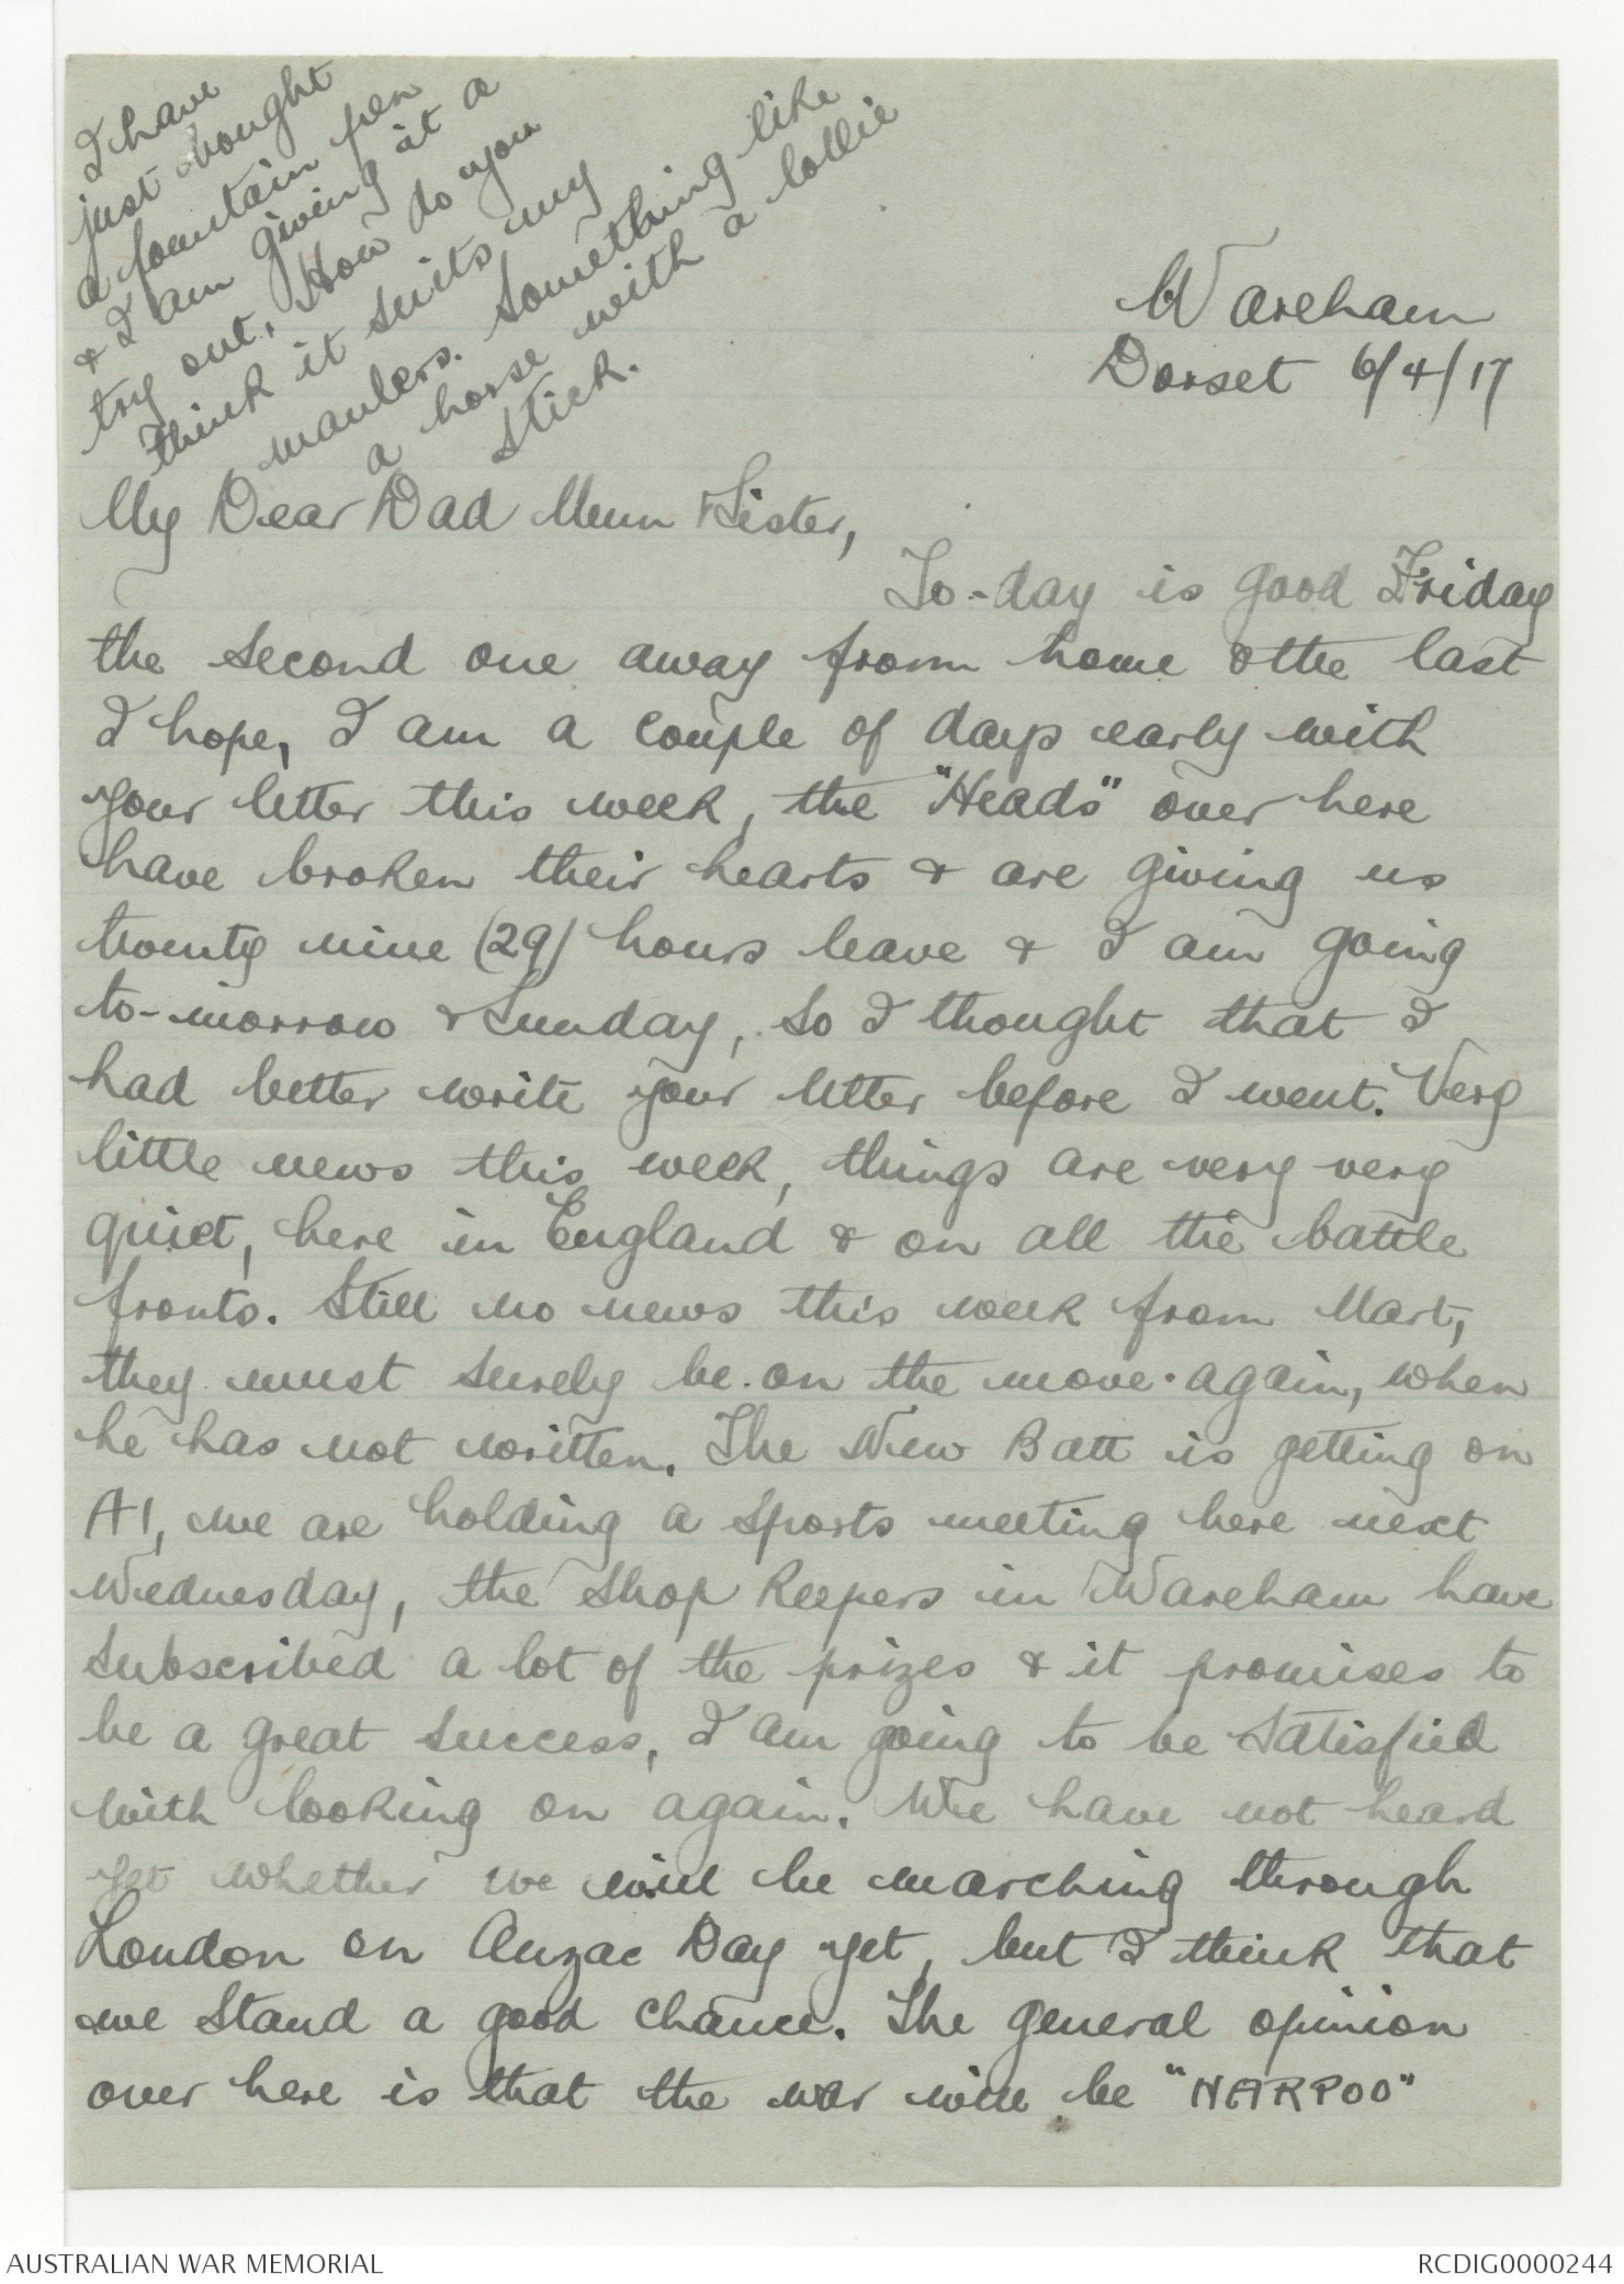 I have
just bought
a fountain pen
& I am giving it a
try out, How do you
think it suits my
maulers. Something like
a horse with a lollie
stick.
Wareham
Dorset 6/4/17
My Dear Dad Mum & Sister,
To-day is good Friday
the second one away from home & the last
I hope, I am a couple of days early with
your letter this week, the "Heads" over here
have broken their hearts & are giving us
twenty nine (29) hours leave & I am going
to-morrow & Sunday, so I thought that I
had better write your letter before I went. Very
little news this week, things are very very
quiet, here in England & on all the battle
fronts. Still no news this week from Mart,
they must surely be on the move again, when
he has not written. The New Batt is getting on
A1, we are holding a sports meeting here next
Wednesday, the Shop Keepers in Wareham have
subscribed a lot of the prizes & it promises to
be a great success, I am going to be satisfied
with looking on again. We have not heard
yet whether we will be marching through
London on Anzac Day yet, but I think that
we stand a good chance. The general opinion
over here is that the war will be "NARPOO"
AUSTRALIAN WAR MEMORIAL
RCDIG0000244